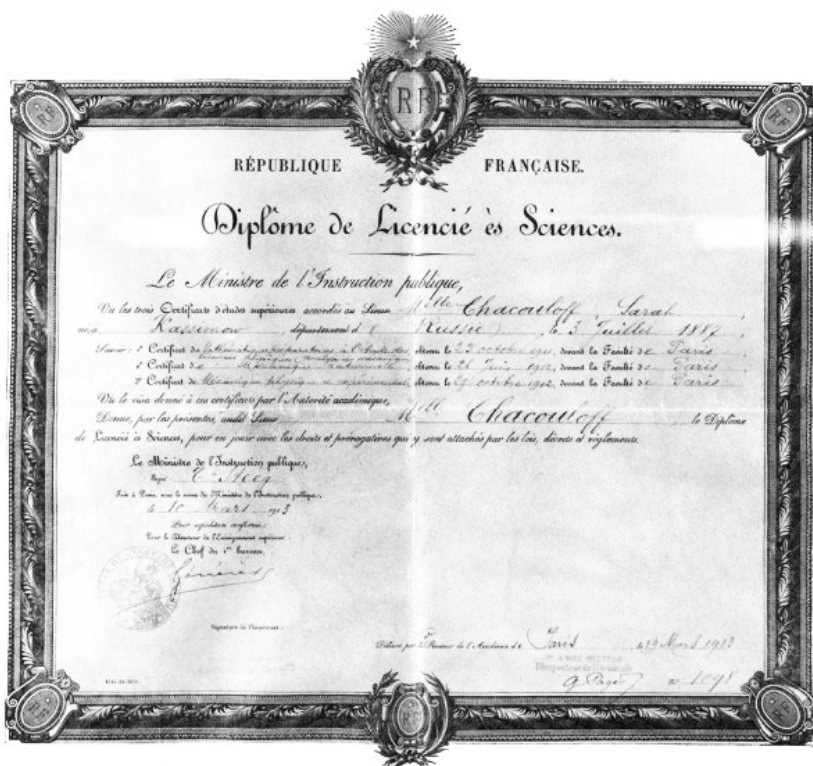 RF
RF
RF
RÉPUBLIQUE FRANÇAISE.
Diplôme de Licencié ès Sciences.
Le Ministre de l'Instruction publique,
Vu les trois Certificats d'études supérieures accordés au Sieur Melle Chacouloff Sarah
né, à Kassimow, département d (Russie) le 3 Juillet 1887
Savoir: 1° Certificat de Mathématiques préparatoires à l'étude des sciences physiques, obtenu le 23 octobre devant la Faculté de Paris
2° Certificat de Mécanique rationnelle, obtenu le 26 Juin 1912, devant la Faculté de Paris
3° Certificat de Mécanique physique et expérimentale, obtenu le 29 octobre 1912, devant la Faculté de Paris
Vu le visa donné à ces certificats par l'Autorité académique,
Donne, par les présentes, audit Sieur Melle Chacouloff le Diplôme
de Licencié ès Sciences, pour en jouir avec les droits et prérogatives qui y sont attachés par les lois, décrets et règlements.
Le Ministre de l'Instruction publique,
Signé T. Steeg
Fait à Paris, sous le sceau du Ministère de l'Instruction publique,
le 10 Mars 1913
Pour expédition conforme:
Pour le Directeur de l'Enseignement supérieur
Le Chef du 1er bureau,
Signature de l'Impétrant:
Délivré par le Recteur de l'Académie de Paris le 19 Mars 1913
n° 1098
RF
RF
RF